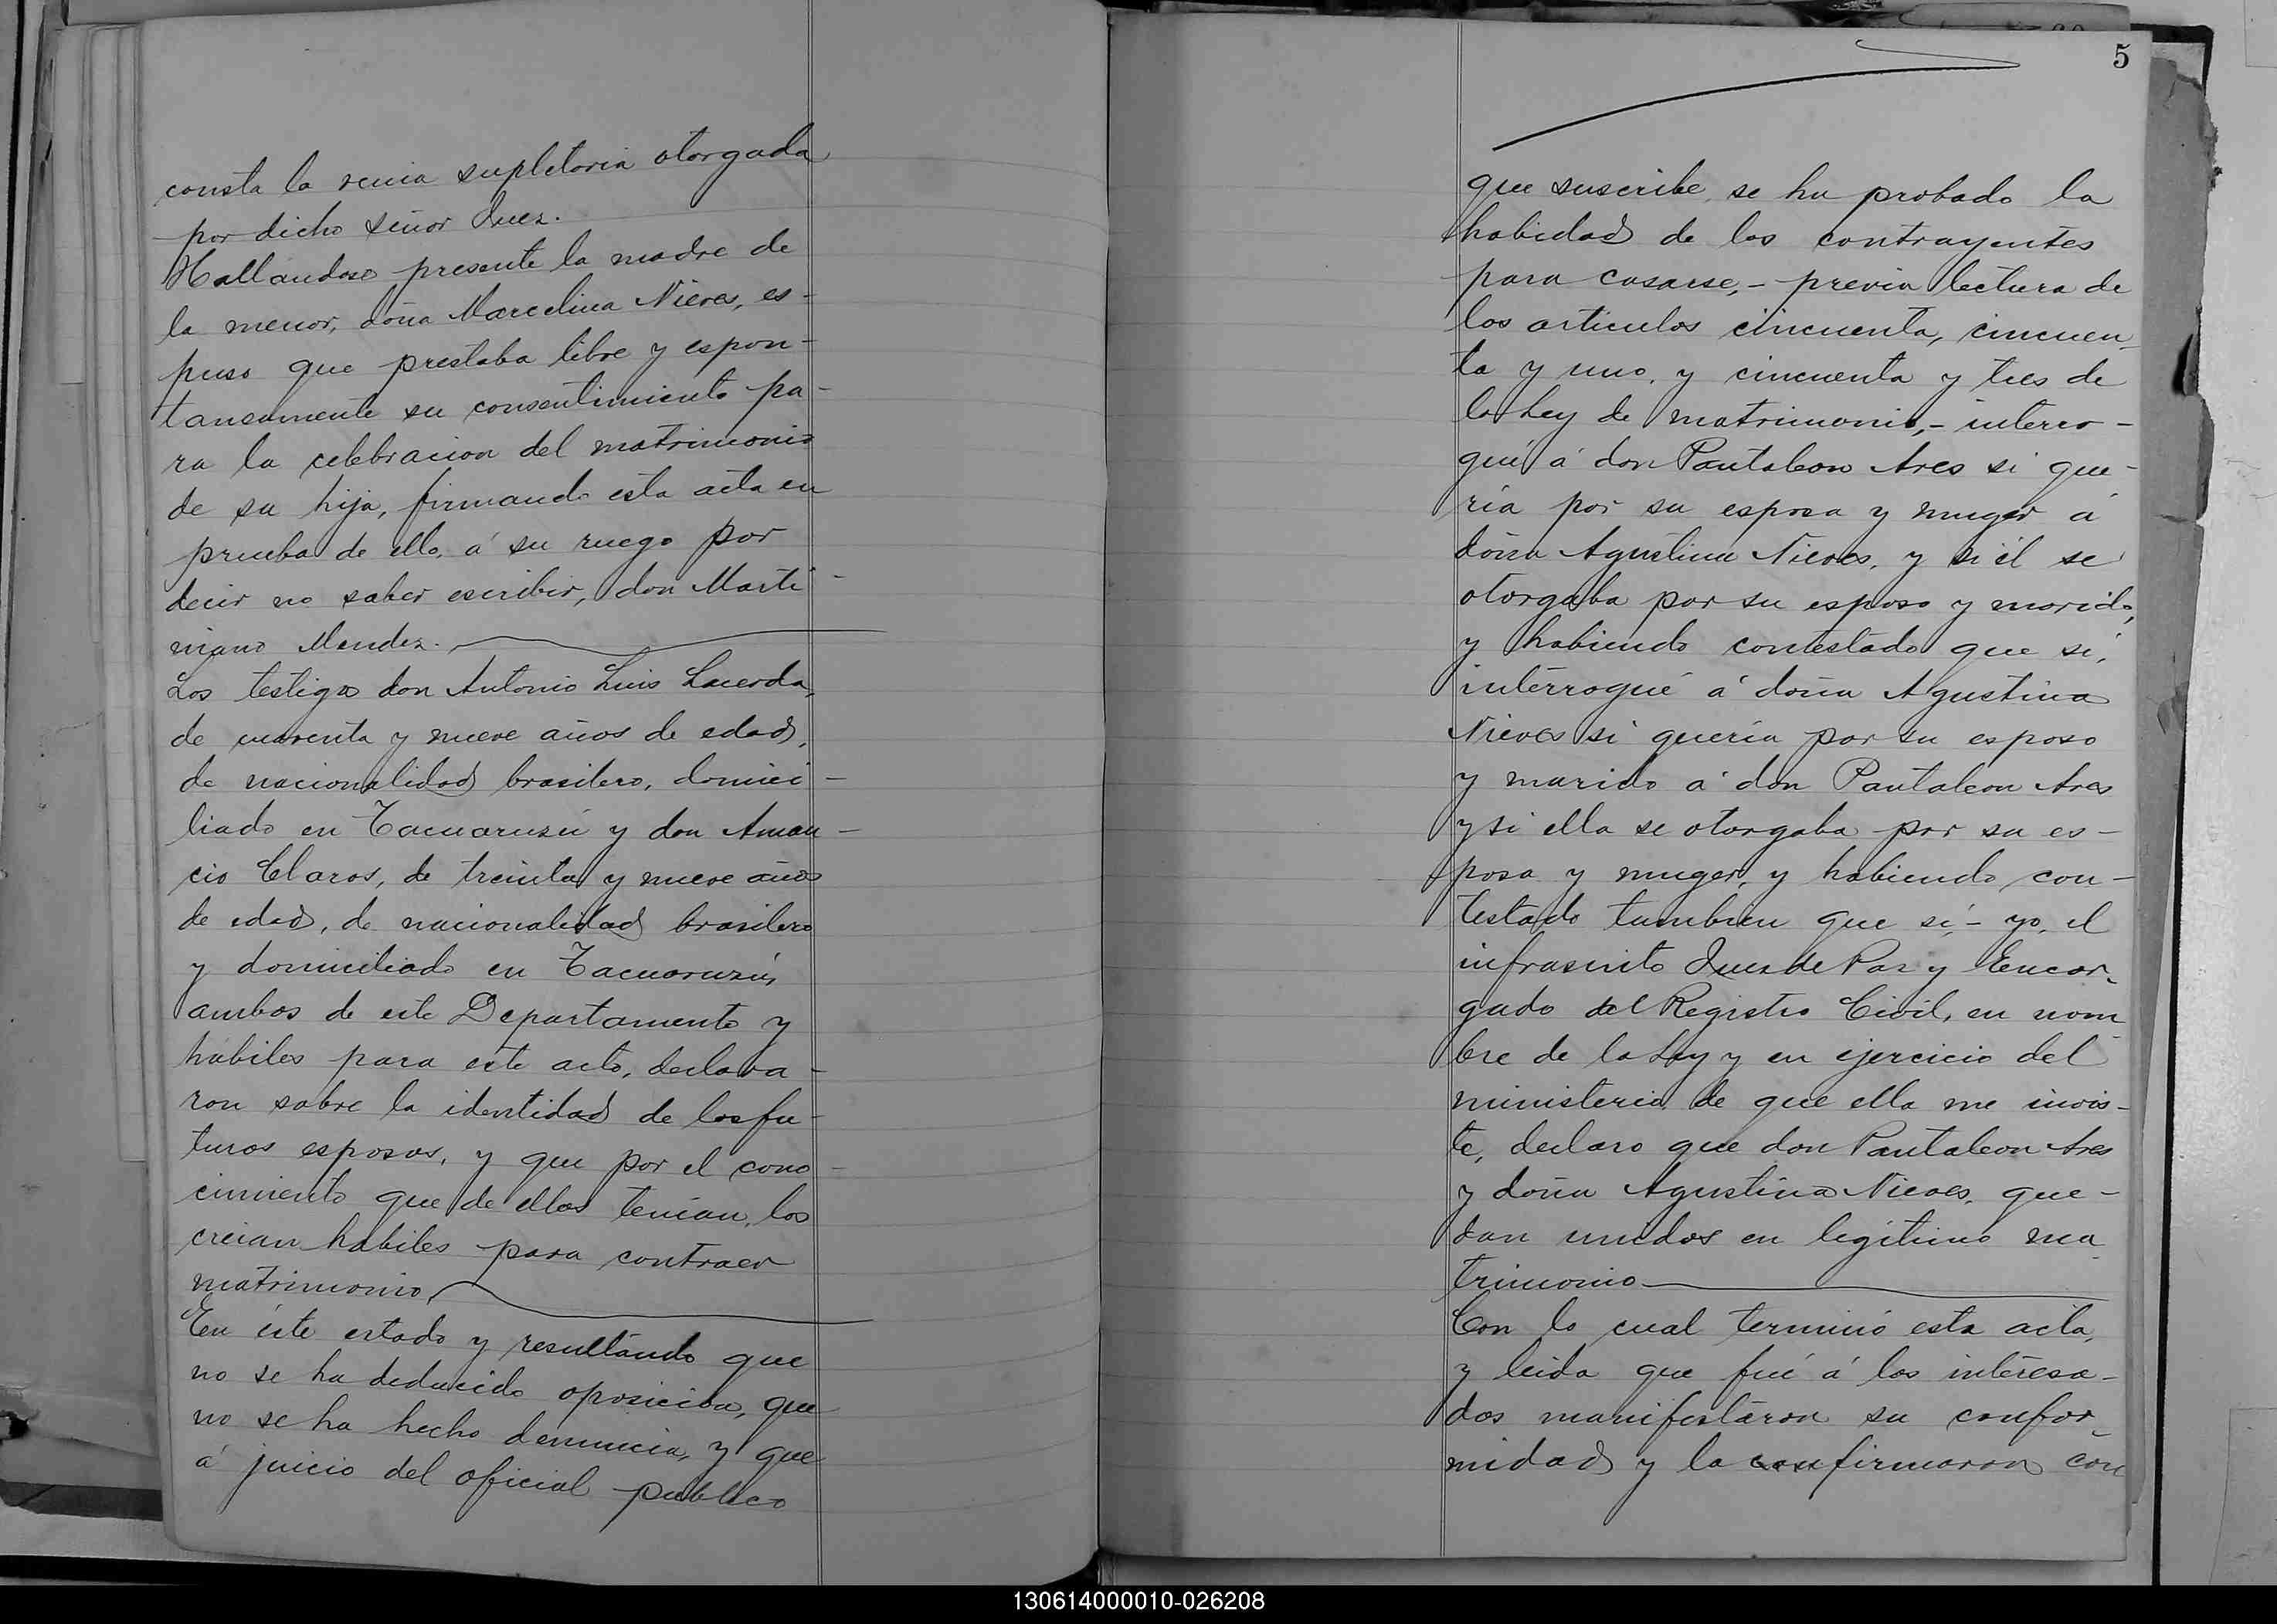 consta la venia supletoria otorgada
por dicho señor Juez.
Hallandose presente la madre de
la menor, doña Marcelina Nieves, es-
puso que prestaba libre y espon-
taneamente su consentimiento pa-
ra la celebracion del matrimonio
de su hija, firmando esta acta en
prueba de ello, á su ruego por
decir no saber escribir, don Marti-
niano Mendez.
Los testigos don Antonio Luis Lacerda,
de cuarenta y nueve años de edad,
de nacionalidad brasilero, domici-
liado en Tacuaruzú y don Aman-
cio Claros, de treinta y nueve años
de edad, de nacionalidad brasilero
y domiciliado en Tacuaruzú,
ambos de este Departamento y
hábiles para este acto, declara-
ron sobre la identidad de los fu-
turos esposos, y que por el cono-
cimiento que de ellos tenian, los
creian habiles para contraer
matrimonio,
En éste estado y resultando que
no se ha deducido oposicion, que
no se ha hecho denuncia, y que
á juicio del oficial publico
5
que suscribe, se ha probado la
habidad de los contrayentes
para casarse,- previa lectura de
los articulos cincuenta, cincuen-
ta y uno, y cincuenta y tres de
la Ley de matrimonio,- interro-
gué á don Pantaleon Ares si que-
ría por su esposa y muger á
doña Agustina Nieves, y si él se
otorgaba por su esposo y marido,
y habiendo contestado que sí,
interrogué á doña Agustina
Nieves si quería por su esposo
y marido á don Pantaleon Ares
y si ella se otorgaba por su es-
posa y muger, y habiendo con-
testado tambien que sí,- yo, el
infrascrito Juez de Paz y Encar-
gado del Registro Civil, en nom-
bre de la Ley y en ejercicio del
ministerio de que ella me invis-
te, declaro que don Pantaleon Ares
y doña Agustina Nieves, que-
dan unidos en legítimo ma-
trimonio
Con lo cual terminó esta acta,
y leida que fué á los interesa-
dos manifestaron su confor-
midad y la confirmaron con
130614000010-026208